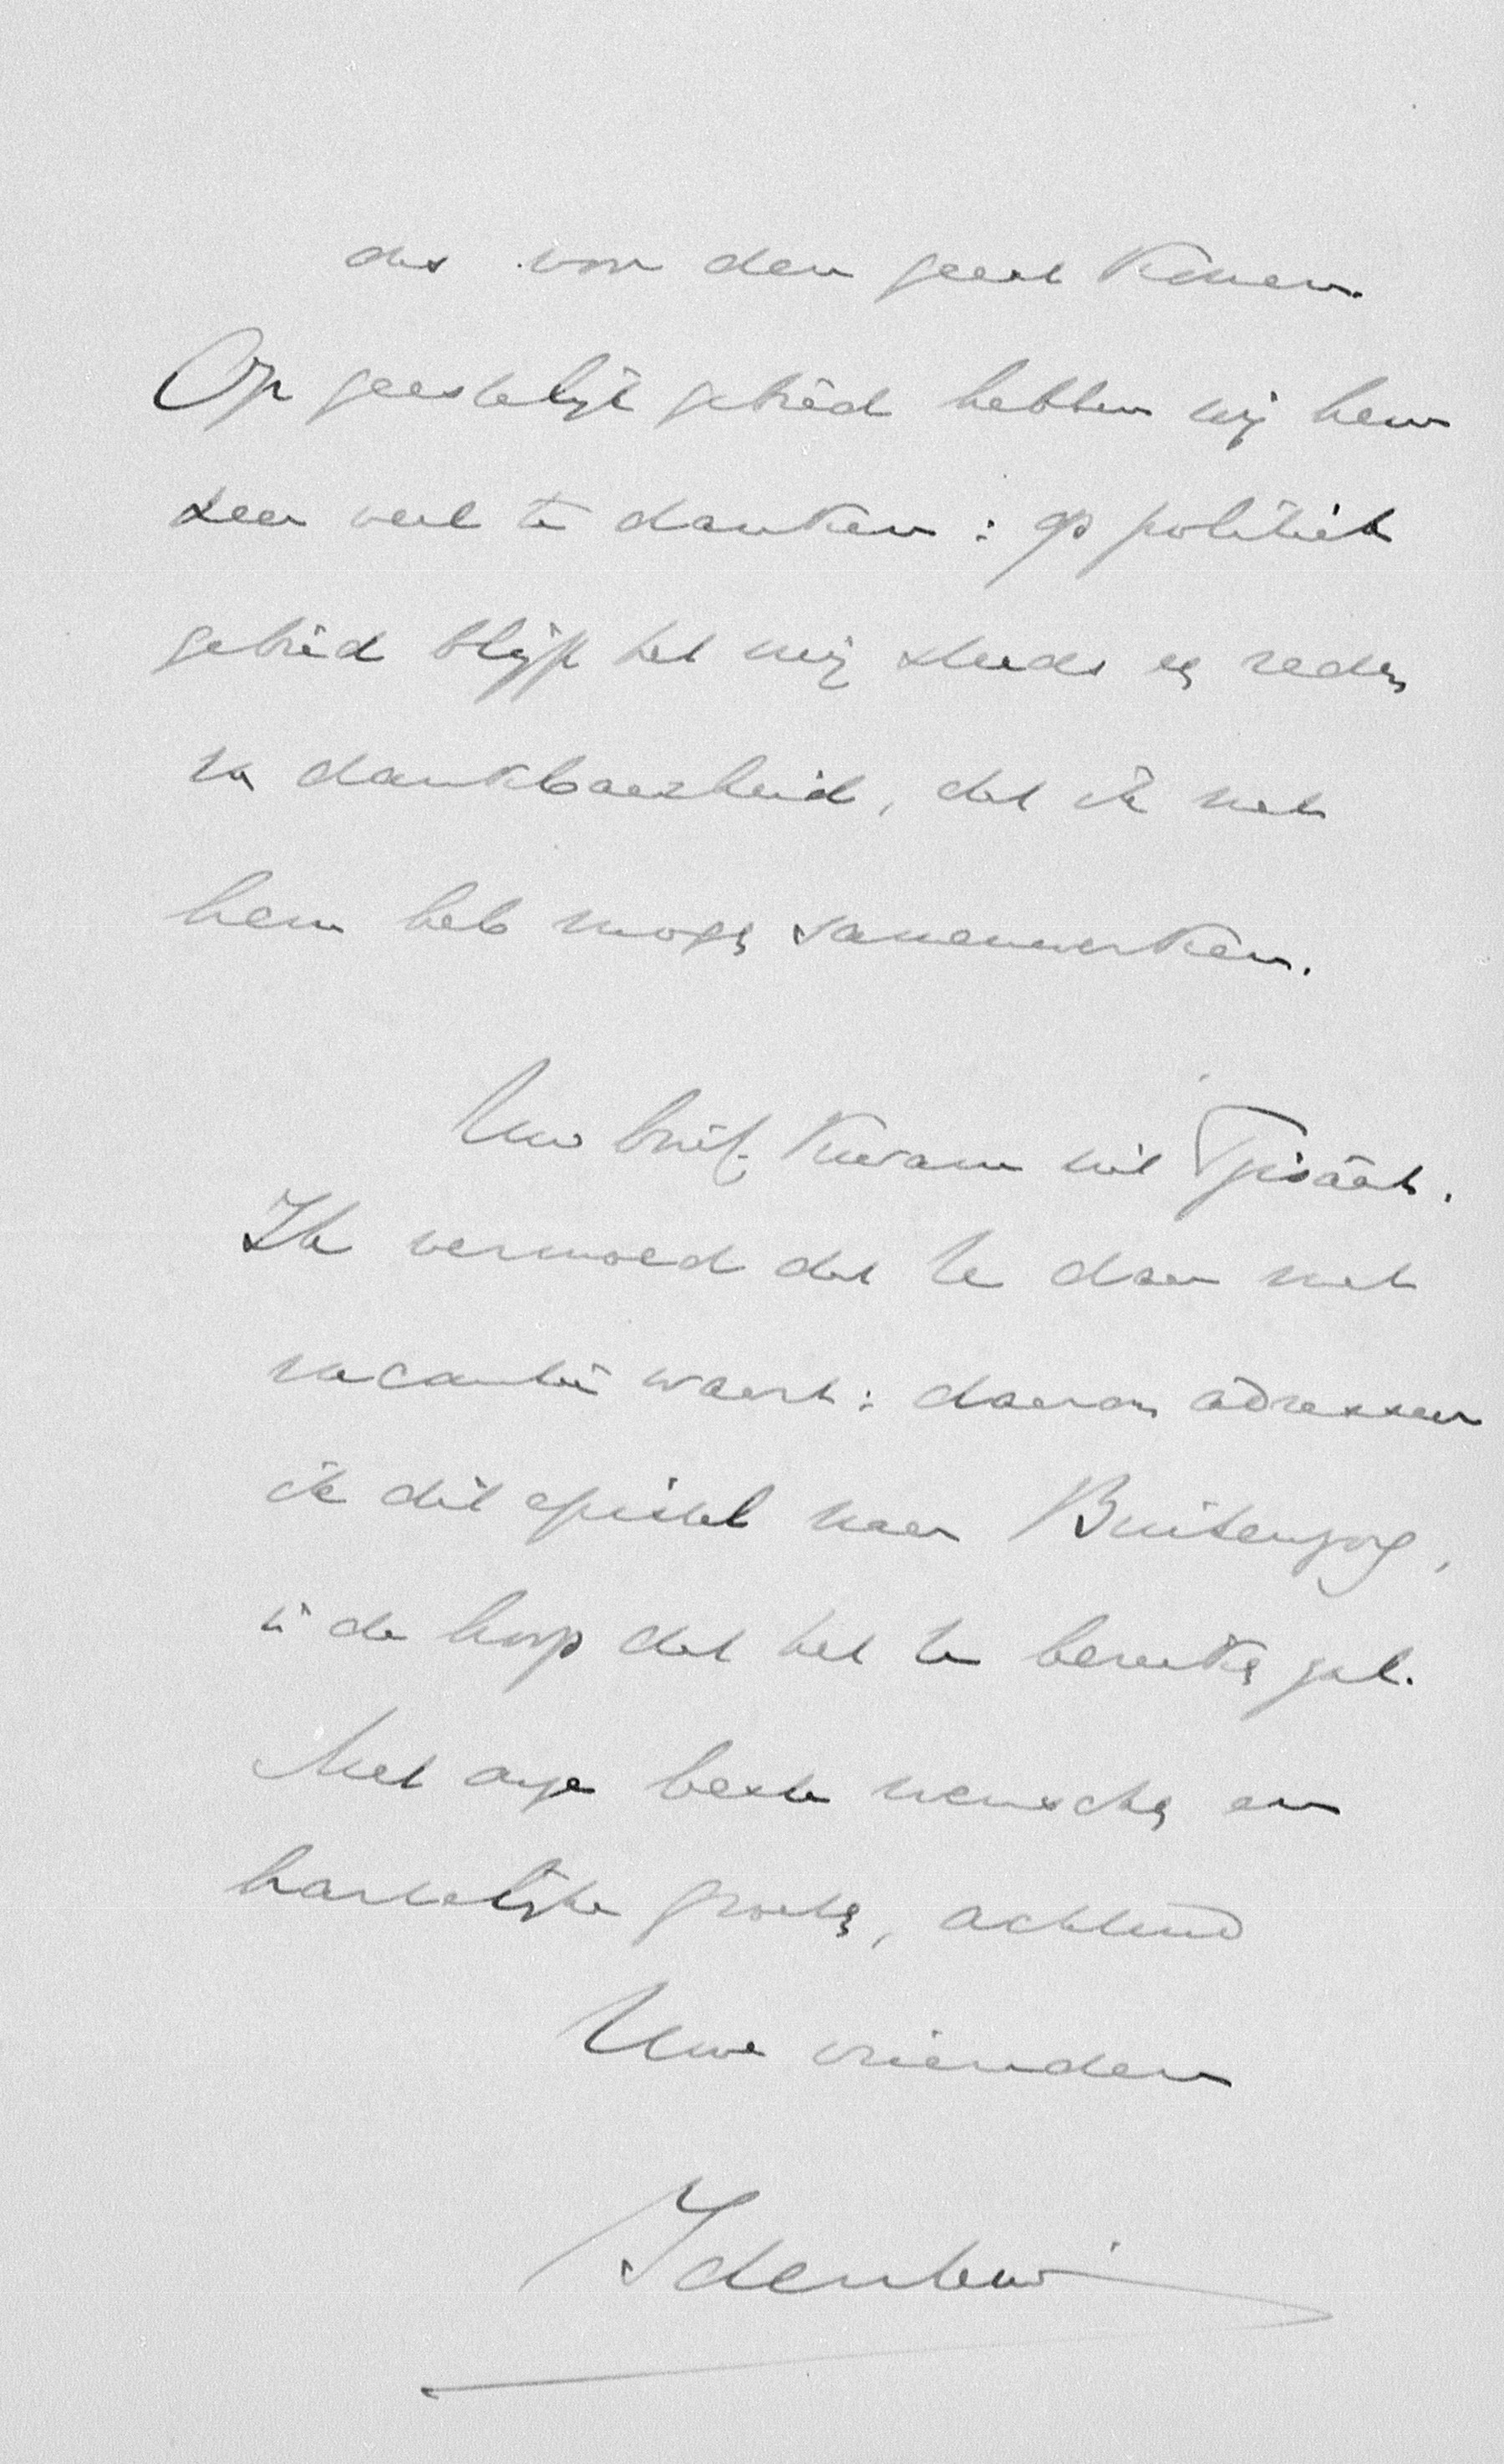 ons voor den geest komen.
Op geestelijk gebied hebben wij hem
zeer veel te danken: op politiek
gebied blijft het mij steeds een reden
van dankbaarheid, dat ik met
hem heb mogen samenwerken.
Uw brief kwam uit Tjisaät.
Ik vermoed dat U daar met
vacantie waart: daarom adresseer
ik dit epistel naar Buitenzorg,
in de hoop dat het U bereiken zal.
Met onze beste wenschen en
hartelijke groeten, achtend
Uwe vrienden
Idenburg